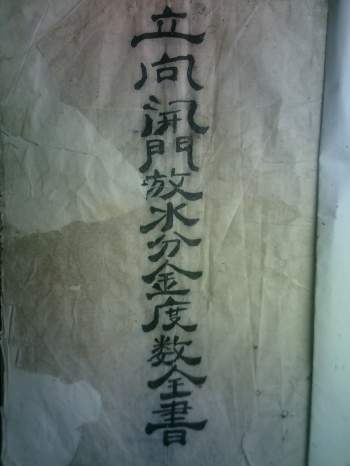 立向開門放水分金度数全書